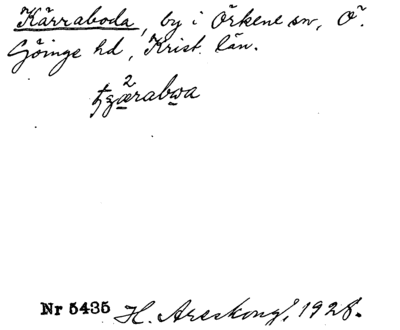 Kärraboda, by i Örkene sn, Ö.
Göinge hd, Krist. län.
2
Nr 5435 H. Areskong, 1928.